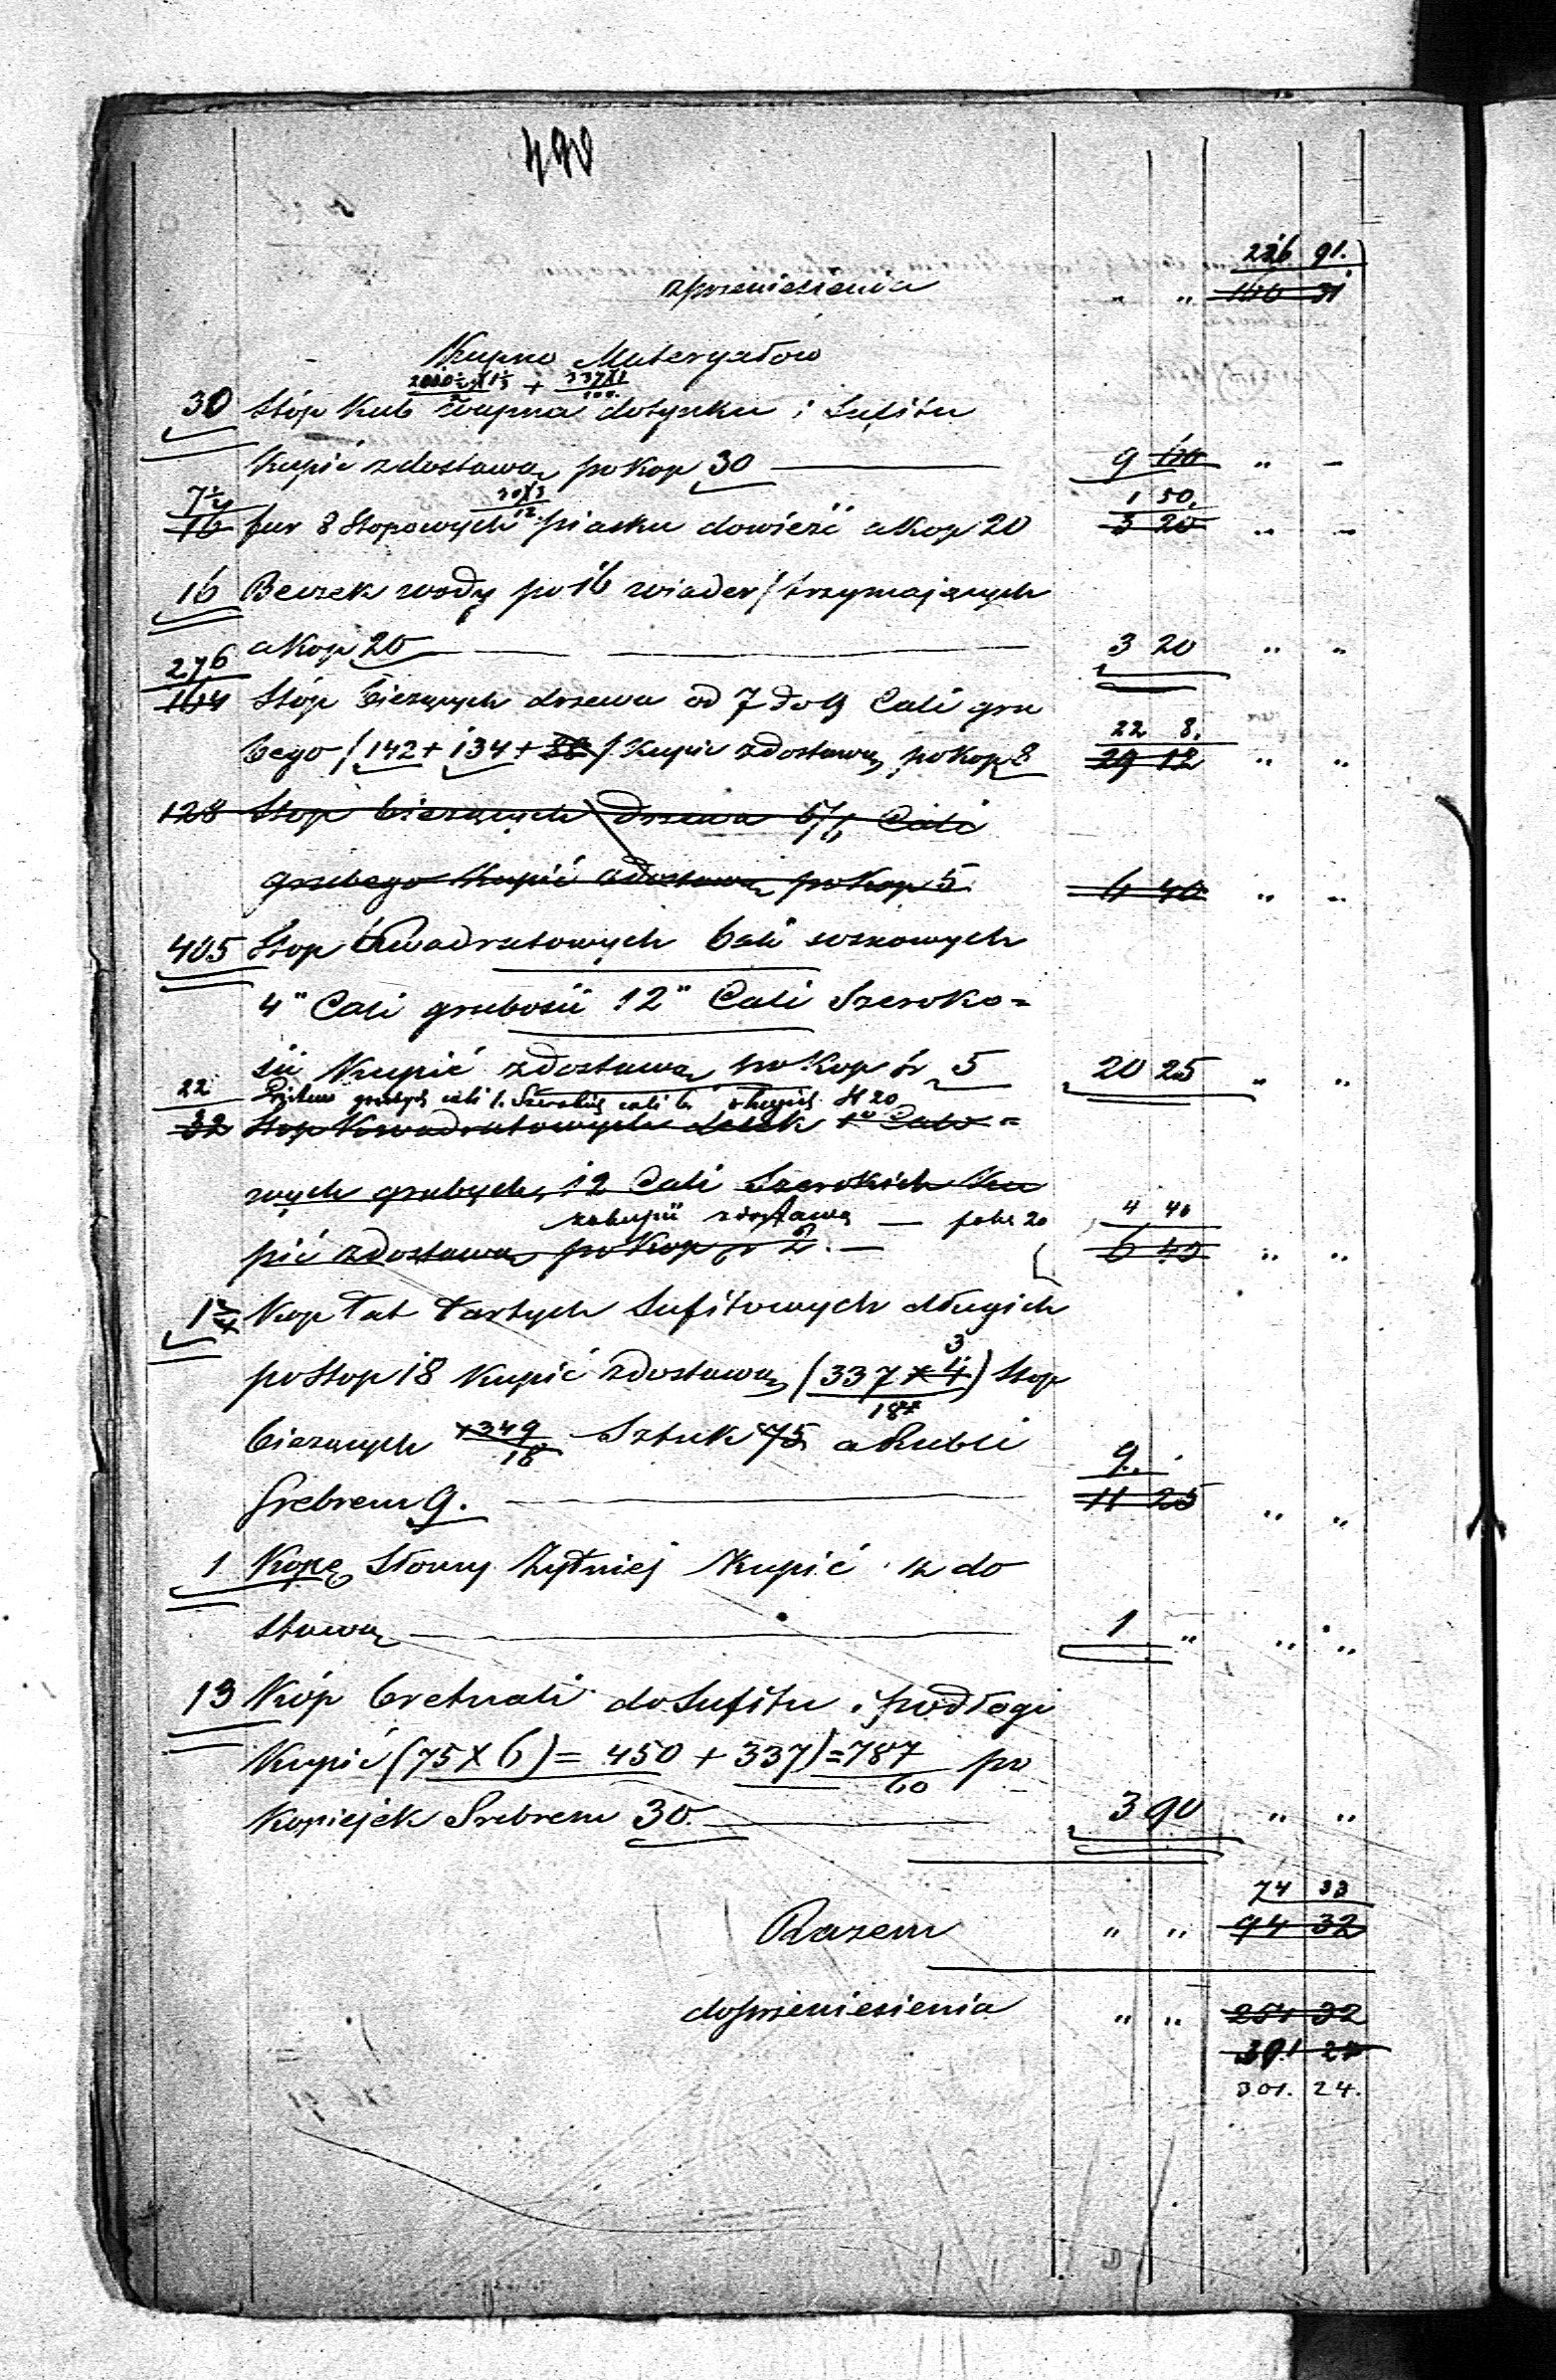 490
226 91.
z przeniesienia " " 140 31
Kupno Materyałow
337X1
30 Stóp Kub wapna do tynku i Sufitu
Kupić z dostawą po Kop 30 — 9 " –
7½ 30X3 12 1 50.
16 fur 8 Stopowych piasku dowieść a Kop 20 3 20 " "
16 Beczek wody po 16 wiader / trzymających
a Kop 20 — 3 20 " "
276
164 Stóp bieżących drzewa od 7 do 9 Cali gru
22 8.
bego / 142 + 134 + 88 / Kupić z dostawą po Kop 8 29 12 " "
128 Stop bieżących drzewa 5/6 Cali
grubego Kupić z dostawą po Kop 5. 6 40 " "
405 Stop Kwadratowych bali sosnowych
4" Cali grubości 12" Cali Szeroko=
ści Kupić z dostawą po Kop sr 5 20 25 " "
22 grubych cali 1. Szerokich cali 6. długich St 20
32 Stop Kwadratowych desek 1" Calo=
wych grubych, 12 Cali Szerokich Ku
zakupić z dostawą — po k 20 4 40
pić z dostawą po Kop sr 2. — 6 40 " "
1¼ Kop łat tartych Sufitowych długich
3
po Stop 18 Kupić z dostawą (337 × 4) Stop
18
bieżących +349 Sztuk 75 a Rubli
18 9. "
Srebrem 9. — 11 25 " "
1 Kopę Słomy Żytniej Kupić z do
stawą — 1 " " "
13 Kóp bretnali do Sufitu i podłogi
Kupić (75 X 6) = 450 + 337) = 787 po
60
Kopiejek Srebrem 30. — 3 90 " "
74 33
Razem " " 94 32
do przeniesienia " " 251 32
301 24
301. 24.